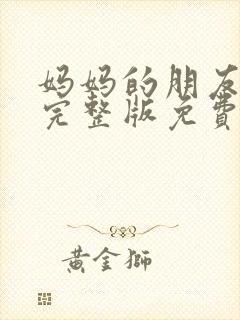 妈妈的朋友
完整版免費
黄金獅